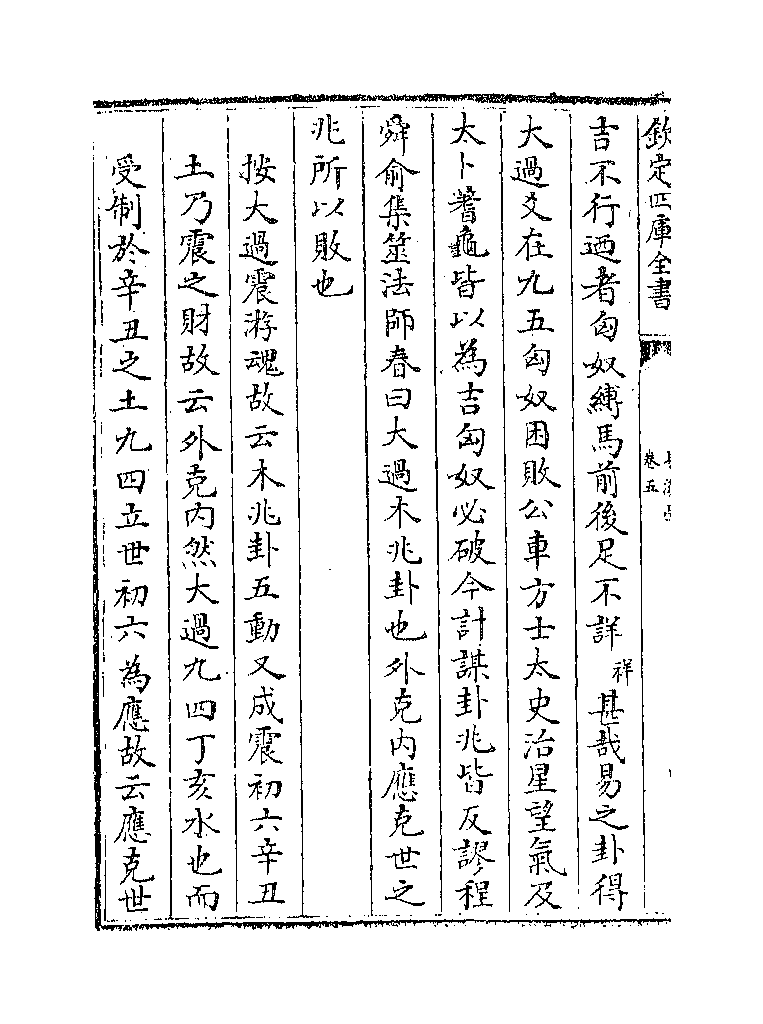 欽定四庫全書
卷五
吉不行迺者匈奴縛馬前後足不詳祥甚哉易之卦得
大過爻在九五匈奴困敗公車方士太史治星望氣及
太卜蓍龜皆以為吉匈奴必破今計謀卦兆皆反謬程
舜俞集筮法師春曰大過木兆卦也外克内應克世之
兆所以敗也
按大過震游魂故云木兆卦五動又成震初六辛丑
土乃震之財故云外克内然大過九四丁亥水也而
受制於辛丑之土九四立世初六為應故云應克世